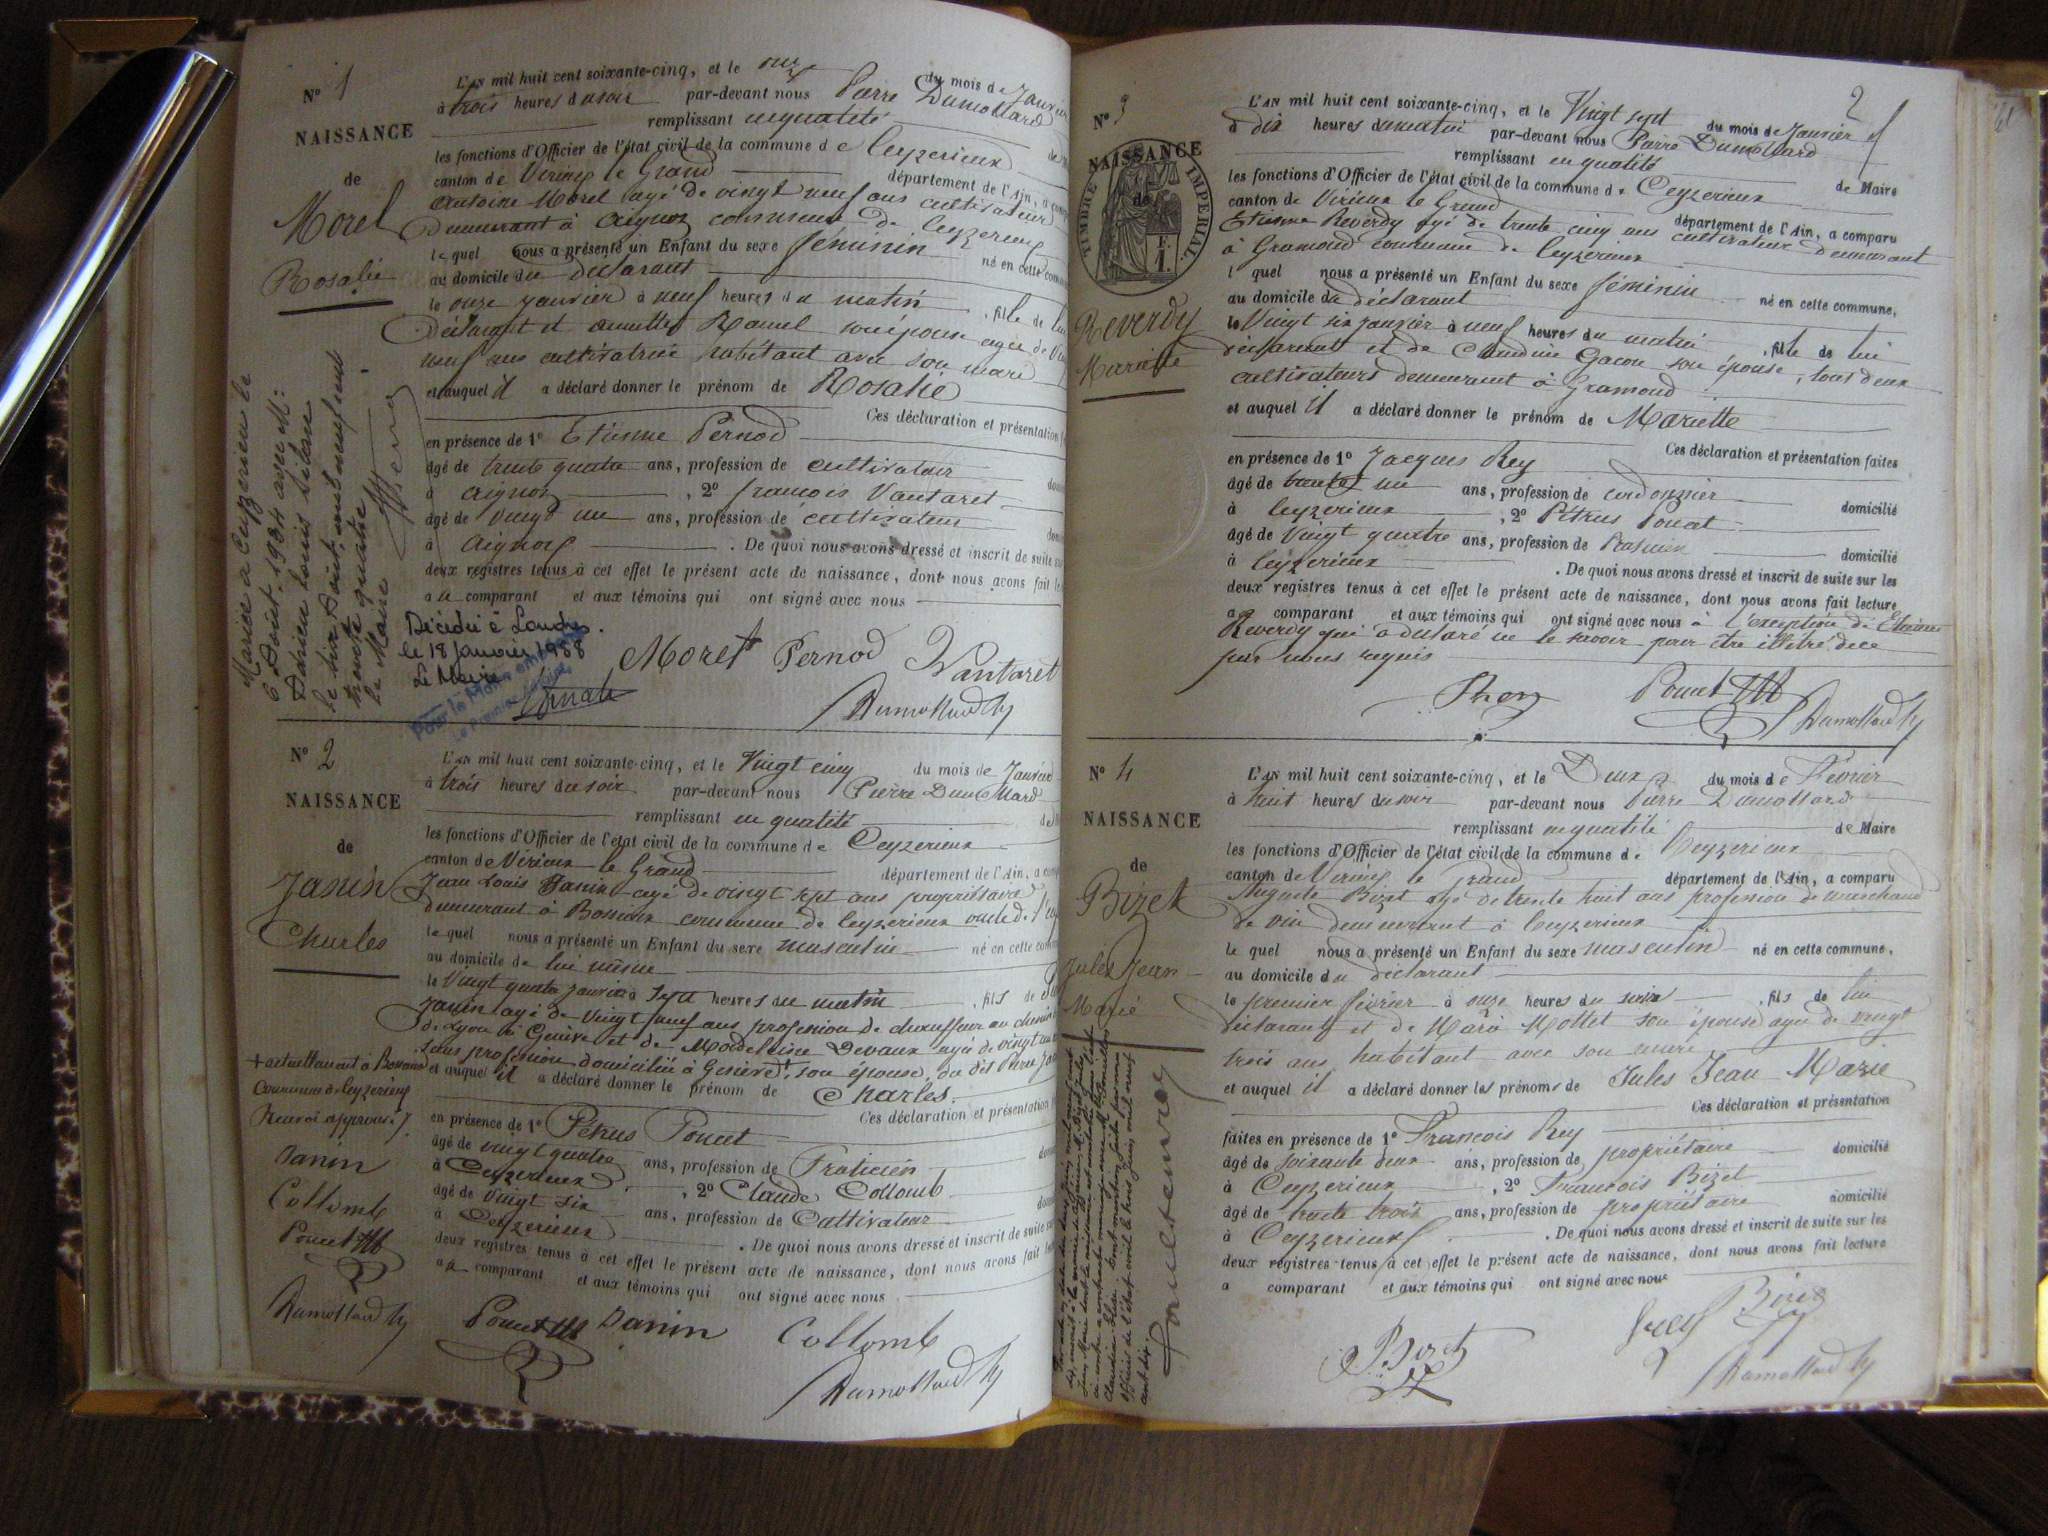 N° 1
NAISSANCE
de
Morel
Rosalie
L'AN mil huit cent soixante-cinq, et le onze du mois de Janvier
à trois heures du soir par-devant nous Pierre Dumollard
remplissant en qualité
les fonctions d'Officier de l'état civil de la commune de Ceyzerieux
canton de Virieux le Grand département de l'Ain, a
Antoine Morel agé de vingt neuf ans cultivateur
Demeurant à Aignoz commune de Ceyzerieux
lequel nous a présenté un Enfant du sexe féminin né en cette
au domicile du déclarant
le onze janvier à neuf heures du matin , fille de lui
Déclarant et son épouse agée de
neuf ans cultivatrice habitant avec son mari
et auquel il a déclaré donner le prénom de Rosalie
Ces déclaration et présentation
en présence de 1° Etienne Pernod
âgé de trente quatre ans, profession de cultivateur
à Aignoz , 2° francois Vantaret
âgé de vingt un ans, profession de cultivateur
à Aignoz . De quoi nous avons dressé et inscrit de suite
deux registres tenus à cet effet le présent acte de naissance, dont nous avons fait
au comparant et aux témoins qui ont signé avec nous
Morel Pernod Vantaret
Dumollard
Mariée à Ceyzerieu le
6 Août 1934 avec M:
Adrien Louis
le six Août, mil neuf cent
trente quatre
Le Maire
Décédée à
le 18 janvier 1958
Le Maire
Pour le Maire empêché
N° 2
NAISSANCE
de
Janin
Charles
L'AN mil huit cent soixante-cinq, et le Vingt cinq du mois de Janvier
à trois heures du soir par-devant nous Pierre Dumollard
remplissant en qualité
les fonctions d'Officier de l'état civil de la commune de Ceyzerieux
canton de Virieux le Grand département de l'Ain, a
Jean Louis Janin agé de vingt sept ans propriétaire
demeurant à commune de Ceyzerieux oncle de
lequel nous a présenté un Enfant du sexe masculin né en cette
au domicile de lui même
le Vingt quatre janvier à sept heures du matin , fils de
Janin agé de Vingt neuf ans profession de chauffeur au chemin
de Lyon à Genève et de Madeleine Devaux agée de vingt
sans profession domiciliés à Genève + son épouse, du dit Pierre
et auquel il a déclaré donner le prénom de Charles.
Ces déclaration et présentation
en présence de 1° Pétrus Poncet
âgé de vingt quatre ans, profession de Praticien
à Ceyzerieux , 2° Claude Collomb
âgé de vingt six ans, profession de Cultivateur
à Ceyzerieux . De quoi nous avons dressé et inscrit de suite
deux registres tenus à cet effet le présent acte de naissance, dont nous avons fait
au comparant et aux témoins qui ont signé avec nous
Poncet Janin Collomb
Dumollard
+ actuellement à
Commune de Ceyzerieux
Renvoi approuvé
Janin
Collomb
Poncet
Dumollard
2
N° 3
NAISSANCE
de
TIMBRE IMPERIAL
1 F.
Reverdy
Mariette
L'AN mil huit cent soixante-cinq, et le Vingt sept du mois de Janvier
à dix heures du matin par-devant nous Pierre Dumollard
remplissant en qualité de Maire
les fonctions d'Officier de l'état civil de la commune de Ceyzerieux
canton de Virieux le Grand département de l'Ain, a comparu
Etienne Reverdy agé de trente cinq ans cultivateur demeurant
à Gramond commune de Ceyzerieux
lequel nous a présenté un Enfant du sexe féminin né en cette commune,
au domicile du déclarant
le Vingt six janvier à neuf heures du matin , fille de lui
déclarant et de Claudine Gacon son épouse, tous deux
cultivateurs demeurant à Gramond
et auquel il a déclaré donner le prénom de Mariette
Ces déclaration et présentation faites
en présence de 1° Jacques Rey
âgé de trente un ans, profession de cordonnier domicilié
à Ceyzerieux , 2° Pétrus Poncet
âgé de Vingt quatre ans, profession de Praticien domicilié
à Ceyzerieux . De quoi nous avons dressé et inscrit de suite sur les
deux registres tenus à cet effet le présent acte de naissance, dont nous avons fait lecture
au comparant et aux témoins qui ont signé avec nous à l'exception de Etienne
Reverdy qui a déclaré ne le savoir pour être illétré de ce
par nous requis
Poncet
Dumollard
N° 4
NAISSANCE
de
Bizet
Jules Jean
Marie
L'AN mil huit cent soixante-cinq, et le Deux du mois de Février
à huit heures du soir par-devant nous Pierre Dumollard
remplissant en qualité de Maire
les fonctions d'Officier de l'état civil de la commune de Ceyzerieux
canton de Virieux le Grand département de l'Ain, a comparu
Auguste Bizet agé de trente huit ans profession de marchand
de vin demeurant à Ceyzerieux
lequel nous a présenté un Enfant du sexe masculin né en cette commune,
au domicile du déclarant
le premier février à onze heures du soir , fils de lui
déclarant et de Marie Mottet son épouse agée de vingt
trois ans habitant avec son mari
et auquel il a déclaré donner les prénoms de Jules Jean Marie
Ces déclaration et présentation
faites en présence de 1° François Rey
âgé de soixante deux ans, profession de propriétaire domicilié
à Ceyzerieux , 2° Francois Bizet
âgé de trente trois ans, profession de propriétaire domicilié
à Ceyzerieux . De quoi nous avons dressé et inscrit de suite sur les
deux registres tenus à cet effet le présent acte de naissance, dont nous avons fait lecture
a comparant et aux témoins qui ont signé avec nous
Bizet
Dumollard